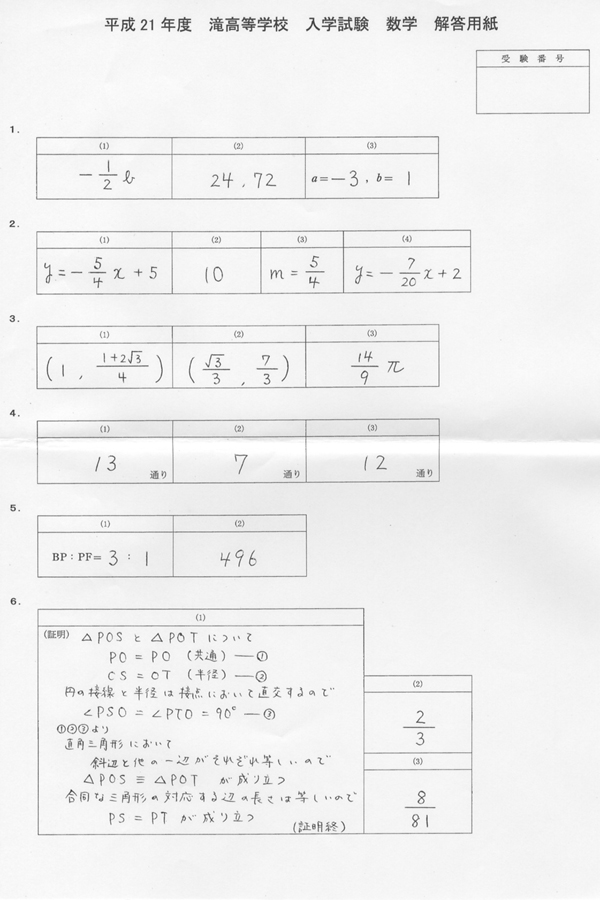 平成 21 年度 滝高等学校 入学試験 数学 解答用紙
受 験 番 号
1.
(1) (2) (3)
-1/2 b 24 , 72 a=-3 , b= 1
2.
(1) (2) (3) (4)
y=-5/4 x+5 10 m=5/4 y=-7/20 x+2
3.
(1) (2) (3)
(1 , (1+2√3)/4) (√3/3 , 7/3) 14/9 π
4.
(1) (2) (3)
13 通り 7 通り 12 通り
5.
(1) (2)
BP : PF= 3 : 1 496
6.
(1)
(証明) △POS と △POT について
PO = PO (共通) ―①
OS = OT (半径) ―②
円の接線と半径は接点において直交するので
∠PSO = ∠PTO = 90° ―③
①②③より
直角三角形において
斜辺と他の一辺がそれぞれ等しいので
△POS ≡ △POT が成り立つ
合同な三角形の対応する辺の長さは等しいので
PS = PT が成り立つ
(証明終)
(2)
2/3
(3)
8/81